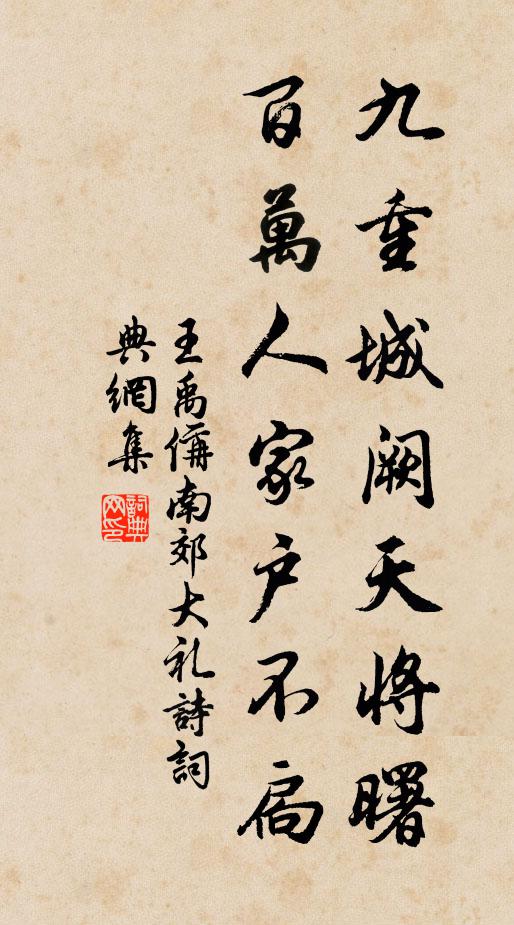 九重城阙天將曙
百萬人家户不扃
王禹偁南郊大礼詩詞
典網集
詞典
网印